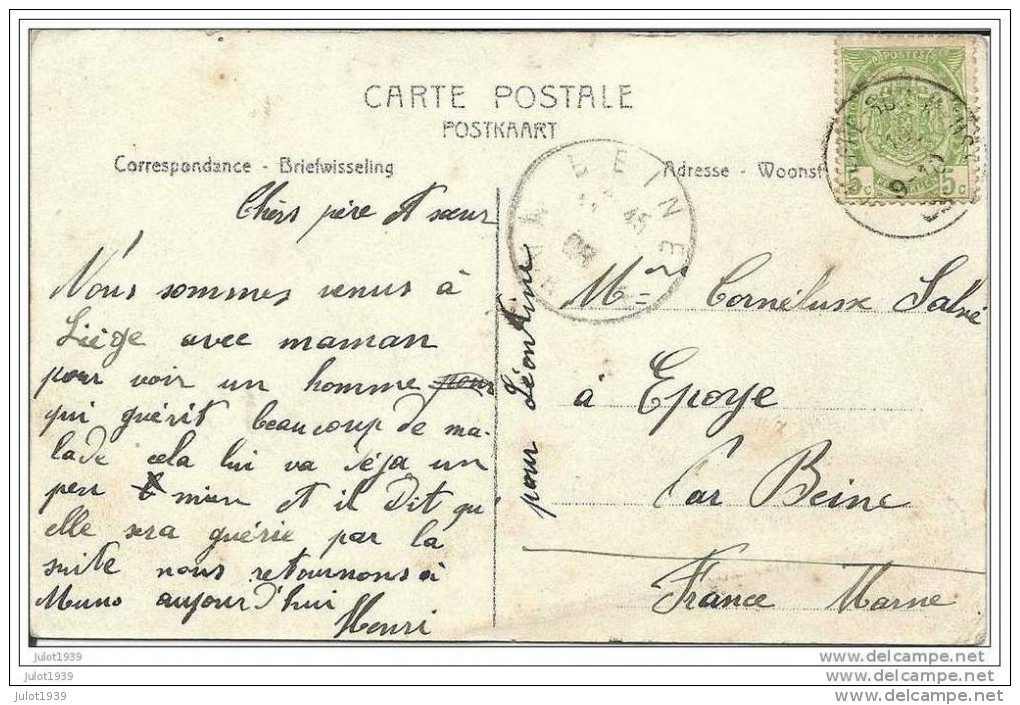 CARTE POSTALE
POSTKAART
Correspondance - Briefwisseling
Adresse - Woonst
POSTES
5c 5c
9-10
BEINE
MARNE
Chers père et sœur
Nous sommes venus à
Liège avec maman
pour voir un homme pour
qui guérit beaucoup de ma-
lade cela lui va déja un
peu mieu et il dit qu
elle sera guérie par la
suite nous retournons à
Muno aujourd'hui
Henri
pour Léontine
Mr
à Epoye
Par Beine
France Marne
julot1939
julot1939
julot1939
http://www.delcampe.net
http://www.delcampe.net
http://www.delcampe.net